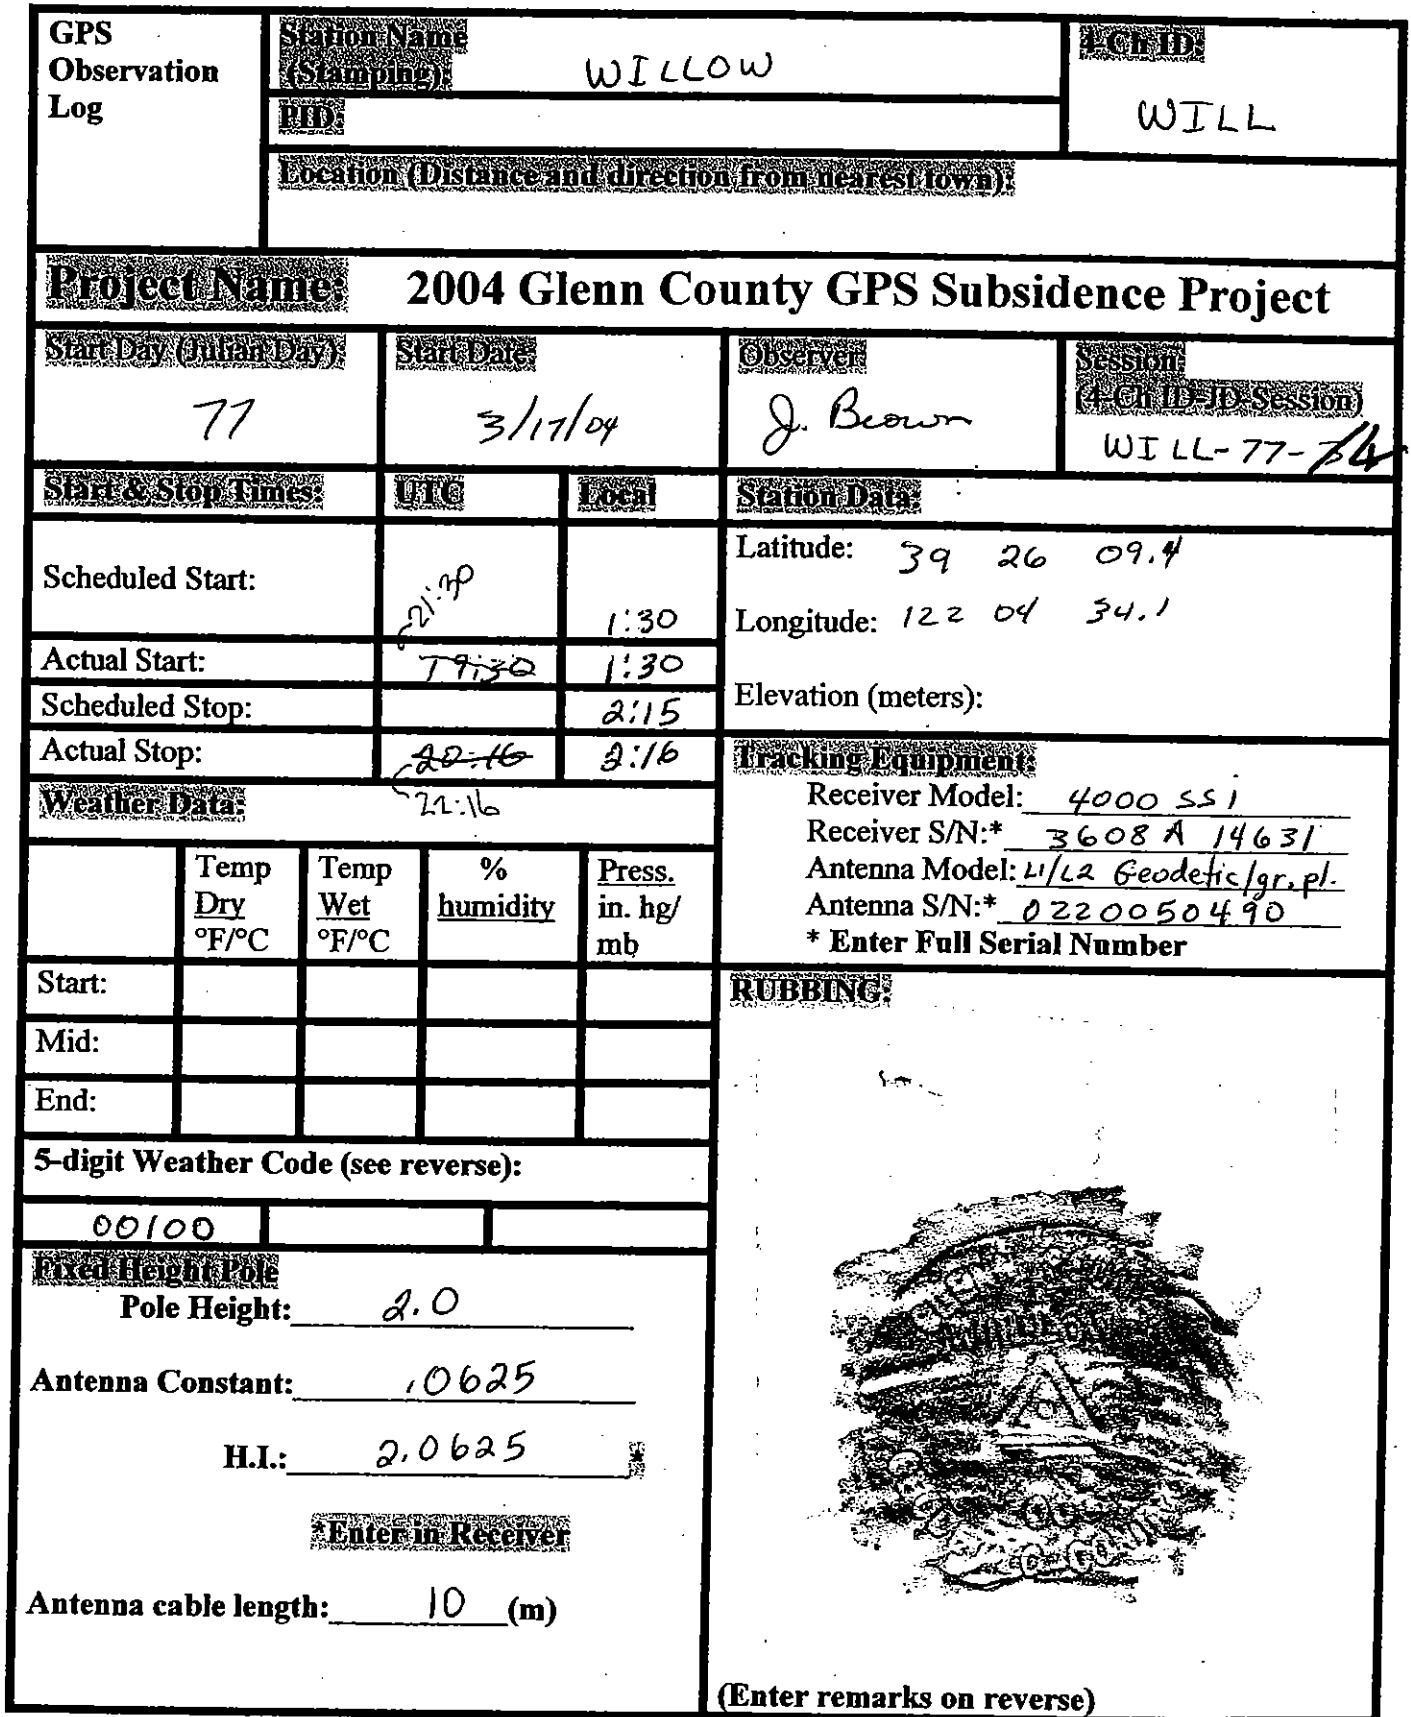 GPS
Observation
Log
Station Name
(Stamping):
WILLOW
4-Ch ID:
WILL
PID:
Location (Distance and direction from nearest town):
Project Name: 2004 Glenn County GPS Subsidence Project
Start Day (Julian Day)
77
Start Date
3/17/04
Observer
J. Brown
Session:
(4-Ch ID-JD-Session)
WILL-77-
Start & Stop Times: UTC Local
Scheduled Start: 1:30
21:30
Actual Start: 19:30 1:30
Scheduled Stop: 2:15
Actual Stop: 20:16 2:16
22:16
Station Data:
Latitude: 39 26 09.4
Longitude: 122 04 34.1
Elevation (meters):
Tracking Equipment:
Receiver Model: 4000 SSi
Receiver S/N:* 3608A 14631
Antenna Model: L1/L2 Geodetic/gr.pl.
Antenna S/N:* 0220050490
* Enter Full Serial Number
Weather Data:
Temp
Dry
°F/°C
Temp
Wet
°F/°C
%
humidity
Press.
in. hg/
mb
Start:
Mid:
End:
5-digit Weather Code (see reverse):
00100
Fixed Height Pole
Pole Height: 2.0
Antenna Constant: .0625
H.I.: 2.0625 *
*Enter in Receiver
Antenna cable length: 10 (m)
RUBBING:
(Enter remarks on reverse)